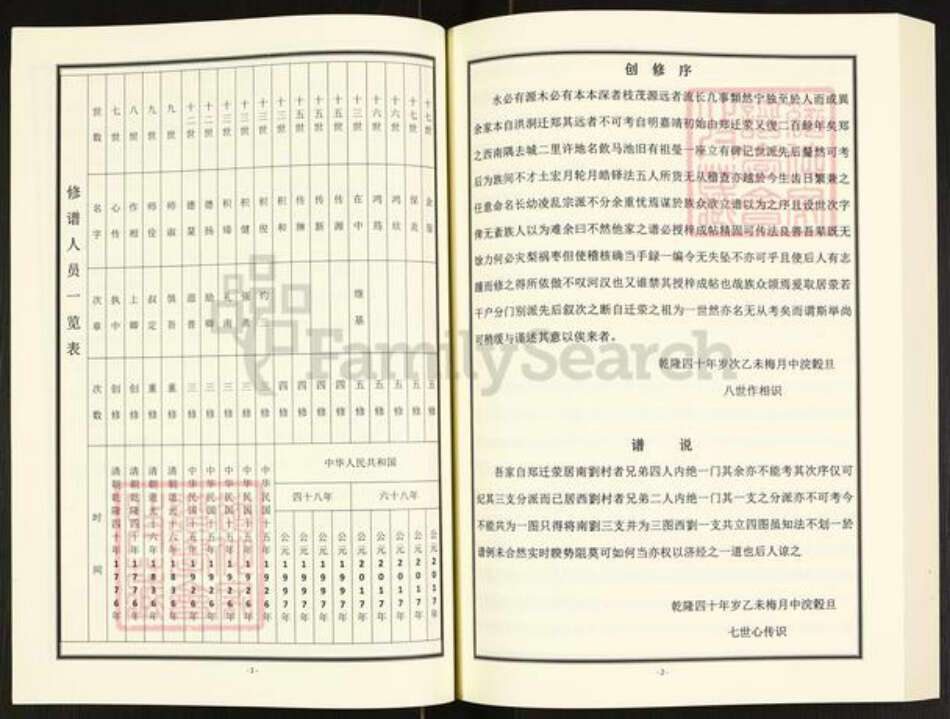 修谱人员一览表
世数 七世 八世 九世 九世 十二世 十二世 十三世 十三世 十三世 十三世 十五世 十五世 十五世 十三世 十六世 十六世 十七世 十七世
名字 心传 作相 师佺 师淑 德荣 德扬 积锡 积健 积倪 积和 传绅 传新 传渊 在中 鸿筠 鸿欣 保炎
次章 执中 上卿 叔定 慎吾 道普 继基
次数 创修 创修 重修 重修 三修 三修 三修 三修 三修 四修 四修 四修 四修 五修 五修 五修 五修 五修
时间
清朝乾隆四十年1776年
清朝乾隆四十年1776年
清朝道光十六年1836年
清朝道光十六年1836年
中华民国十五年1926年
中华民国十五年1926年
中华民国十五年1926年
中华民国十五年1926年
中华民国十五年1926年
中华人民共和国
四十八年 六十八年
公元1997年
公元1997年
公元1997年
公元1997年
公元2017年
公元2017年
公元2017年
公元2017年
公元2017年
-1-
创修序
水必有源木必有本本深者枝茂源远者流长凡事類然宁独至於人而或異
余家本自洪洞迁郑其远者不可考自明嘉靖初始由郑迁荥又復二百餘年矣郑
之西南隅去城二里许地名飲马池旧有祖塋一座立有碑记世派先后釐然可考
后为族间不才土宏月轮月皓铎法五人所货无从稽查亦越於今生齿日繁兼之
任意命名长幼凌乱宗派不分余重忧焉谋於族众欲立谱以为之序且设世次字
俾无紊族人以为难余曰不然他家之谱必授梓成帖精固可传法良善吾辈既无
馀力何必灾梨祸枣但使稽核确当手録一编令无失坠不亦可乎且使后人有志
踵而修之得所依倣不叹河汉也又谁禁其授梓成帖也哉族众颔焉爰取居荥若
干户分门别派先后叙次之断自迁荥之祖为一世然亦名无从考矣而谓斯举尚
可稍缓与谨述其意以俟来者。
乾隆四十年岁次乙未梅月中浣穀旦
八世作相识
谱说
吾家自郑迁荥居南劉村者兄弟四人内绝一门其余亦不能考其次序仅可
纪其三支分派而已居西劉村者兄弟二人内绝一门其一支之分派亦不可考今
不能共为一图只得将南劉三支并为三图西劉一支共立四图虽知法不划一於
谱例未合然实时睽勢阻莫可如何当亦权以济经之一道也后人谅之
乾隆四十年岁乙未梅月中浣穀旦
七世心传识
-2-
FamilySearch